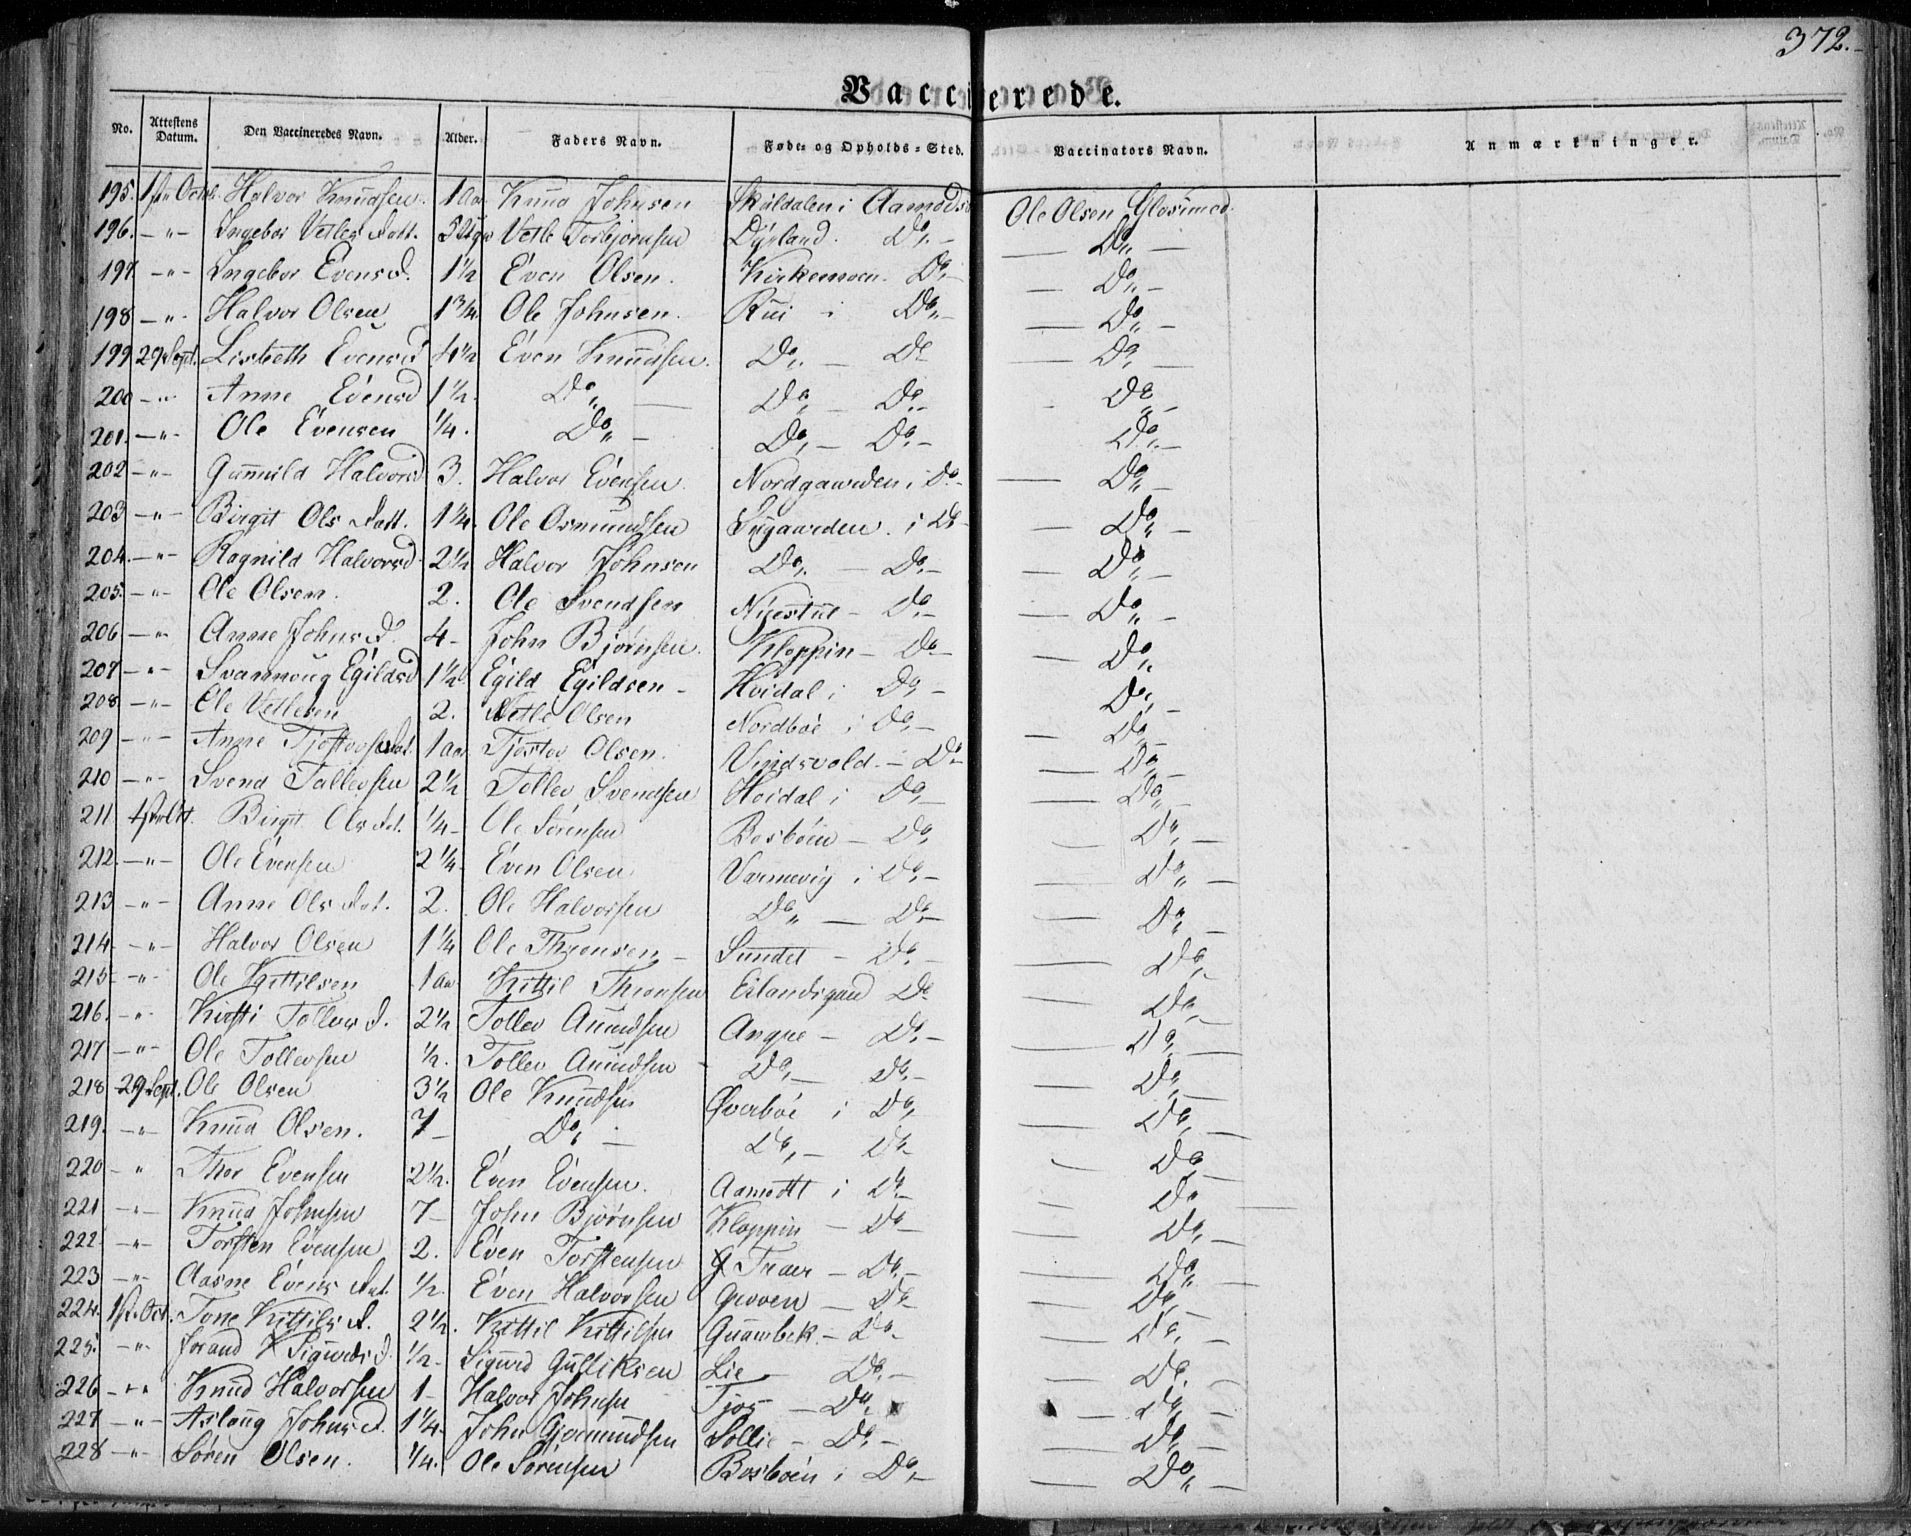 372.
Vaccinerede.
No. Attestens Datum. Den Vaccineredes Navn. Alder. Faders Navn. Føde- og Opholds-Sted. Vaccinators Navn. Anmærkninger.
195. 1ste Octob. Halvor Knudsen. 1 Aar Knud Johnsen Skaldalen i Aamods Ole Olsen Glosimod
196. — " — Ingebor Vetles Datt. Vetle Torbjørnsen Dyrland. Do. — — Do. —
197. — " — Ingebor Evens d. 1½ Even Olsen. Kirkemoen. Do. — — Do. —
198 — " — Halvor Olsen 1¾ Ole Johnsen. Rui i Do. — — Do. —
199 29 Sept. Lisbeth Evensd 4½ Even Knudsen. Do. — Do — Do. —
200 — " — Anne Evensd 1½. Do. — Do. — Do. — Do. —
201. — " — Ole Evensen ¼. Do. — Do. — Do. — Do. —
202 — " — Gunnild Halvorsd 3. Halvor Evensen. Nordgaarden i Do. — — Do. —
203 — " — Birgit Ols Datt. 1¼. Ole Osmundsen Sygaarden. i Do — — Do. —
204. — " — Ragnild Halvorsd 2½ Halvor Johnsen Do. — Do. — — Do. —
205. — " — Ole Olsen. 2. Ole Svendsen Nijestul — Do. — — Do. —
206 — " — Anne Johns d. 4 — John Bjørnsen. Kloppin — Do — — Do.
207 — " — Svannoug Egildsd 1½ Egild Egildsen — Hvidal i Do — Do. —
208. — " — Ole Vetlesen 2. Vetle Olsen Nordbøe i Do. — — Do. —
209 — " — Anne Tjostovs Dat. 1 Aar Tjostov Olsen. Vindsvold. — Do — — Do. —
210 — " — Svend Tallevsen 2½ Tollev Svendsen Hoidal i Do. — — Do. —
211 1ste Oct. Birgit Ols Dat. ¼ — Ole Sørensen Bosbøen — Do. — Do. —
212. — " — Ole Evensen 2¼. Even Olsen Varmevig i Do. — — Do. —
213 — " — Anne Ols Dat. 2. Ole Halvorsen Do. — Do. — — Do. —
214 — " — Halvor Olsen 1¼ Ole Thronsen — Sundet — Do. — — Do. —
215 — " — Ole Kittilsen 1 Aar Kittil Thronsen Do — Do. —
216. — " — Kirsti Tollevs d. 2½ Tollev Amundsen Do. — — Do. —
217 — " — Ole Tollevsen ½. Tollev Amundsen Do. — Do. — — Do. —
218 29 Sept. Ole Olsen 3½ Ole Knudsen Øverbøe i Do. — Do. —
219. — " Knud Olsen. 7 — Do. — Do. — Do — Do. —
220 — " Thor Evensen 2½. Even Evensen. Aamodtt i Do. — — Do
221 — " — Knud Johnsen 7 — John Bjørnsen Kloppin — Do — — Do. —
222 — " — Torsten Evensen 2. Even Torstensen Traer — Do. — — Do. —
223 — " — Aasne Evens Dat. ½. Even Halvorsen Groven — Do — — Do. —
224. 1ste Oct. Tone Kittils d. 2½. Kittil Kittilsen Quambek. — Do. — — Do. —
225. — " — Jorand Sigurds d. ½ — Sigurd Gulliksen Lie — Do. — — Do. —
226 — " — Knud Halvorsen 1 — Halvor Johnsen — Do. — Do. —
227 — " — Aslaug Johns d. 1¼. John Gjermundsen Sollie — Do. — — Do. —
228 — " — Søren Olsen. ¼. Ole Sørensen Bosbøen i Do. — — Do. —